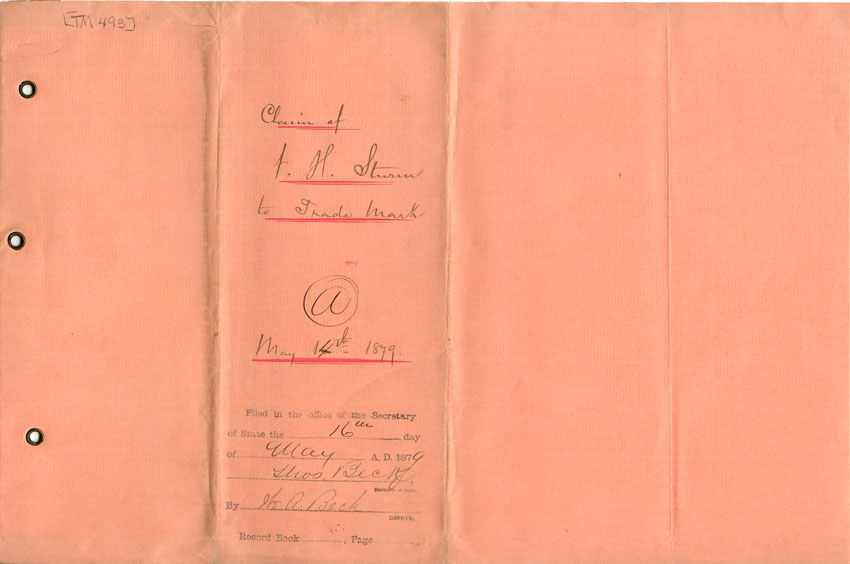 [TM 493]
Claim of
F. H. Sturm
to Trade Mark
a
May 14th 1879.
Filed in the office of the Secretary
of State the 16th day
of May A. D. 1879
Thos Beck,
Secretary of State.
By Wm A. Beck
DEPUTY.
Record Book , Page